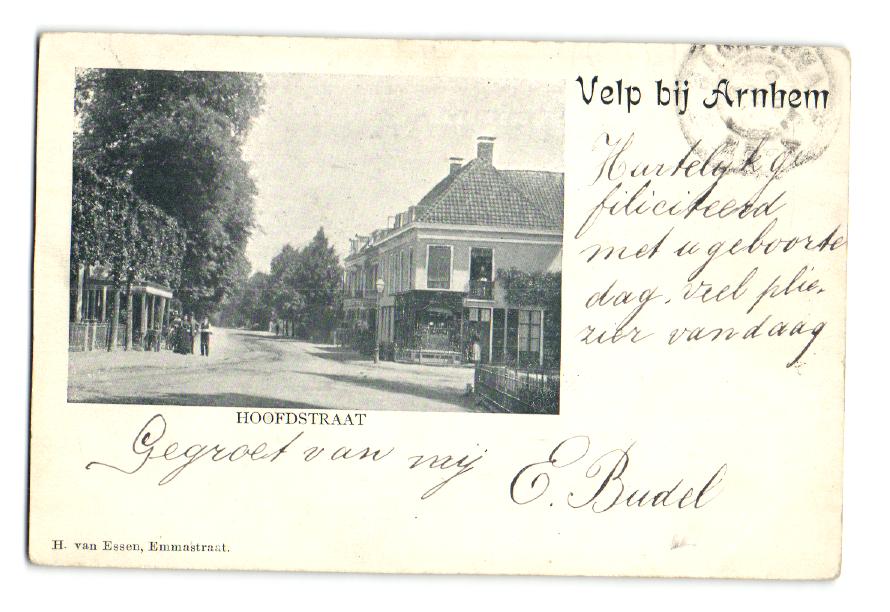 Velp bij Arnhem
Hartelijk ge
filiciteerd
met u geboorte
dag. veel plie-
zier vandaag
HOOFDSTRAAT
Gegroet van mij E. Budel
H. van Essen, Emmastraat.